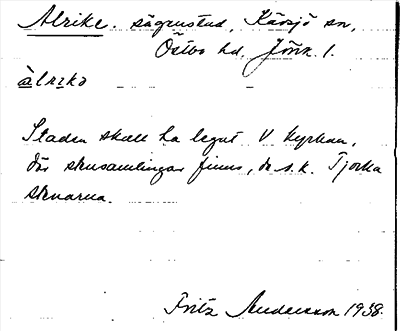 Alrike. sägenstad, Kävsjö sn,
Östbo hd. Jönk. l.
àlrikə
Staden skall ha legat V kyrkan,
där stensamlingar finns, de s.k. Tjocka
stenarna.
Fritz Andersson 1938.